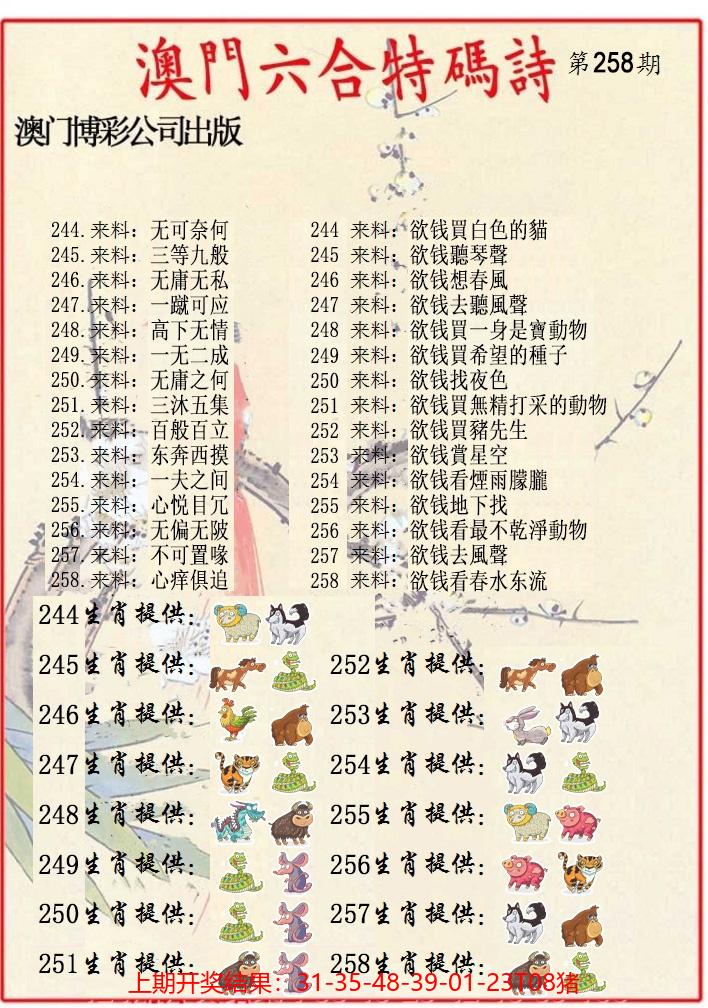 澳門六合特碼詩 第258期
澳门博彩公司出版
244.来料：无可奈何
245.来料：三等九般
246.来料：无庸无私
247.来料：一蹴可应
248.来料：高下无情
249.来料：一无二成
250.来料：无庸之何
251.来料：三沐五集
252.来料：百般百立
253.来料：东奔西摸
254.来料：一夫之间
255.来料：心悦目冗
256.来料：无偏无陂
257.来料：不可置喙
258.来料：心痒俱追
244 来料：欲钱買白色的貓
245 来料：欲钱聽琴聲
246 来料：欲钱想春風
247 来料：欲钱去聽風聲
248 来料：欲钱買一身是寶動物
249 来料：欲钱買希望的種子
250 来料：欲钱找夜色
251 来料：欲钱買無精打采的動物
252 来料：欲钱買豬先生
253 来料：欲钱賞星空
254 来料：欲钱看煙雨朦朧
255 来料：欲钱地下找
256 来料：欲钱看最不乾淨動物
257 来料：欲钱去風聲
258 来料：欲钱看春水东流
244生肖提供：
245生肖提供：
246生肖提供：
247生肖提供：
248生肖提供：
249生肖提供：
250生肖提供：
251生肖提供：
252生肖提供：
253生肖提供：
254生肖提供：
255生肖提供：
256生肖提供：
257生肖提供：
258生肖提供：
上期开奖结果：31-35-48-39-01-23T08猪